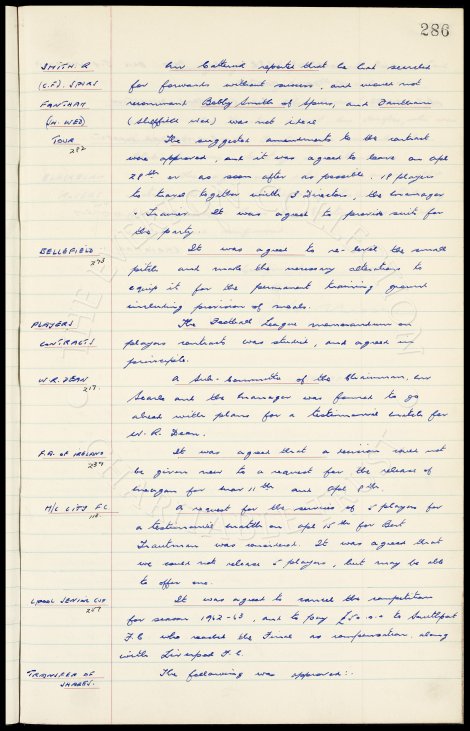 286
SMITH. R
(C.F). SPURS
FANTHAM
(SH. WED)
Mr Catterick reported that he had searched
for forwards without success, and would not
recommend Bobby Smith of Spurs, and Fantham
(Sheffield Wed) was not ideal
TOUR
282
The suggested amendments to the contract
were approved, and it was agreed to leave on Apl
28th or as soon after as possible. 18 players
to travel together with 3 Directors, the Manager
& Trainer. It was agreed to provide suits for
the party.
BELLEFIELD
273
It was agreed to re-level the small
pitch and make the necessary alterations to
equip it for the permanent training ground
including provision of meals.
PLAYERS
CONTRACTS
The Football League memorandum on
players contracts was studied, and agreed in
principle.
W.R. DEAN
217.
A Sub-Committee of the Chairman, Mr
Searle and the Manager was formed to go
ahead with plans for a testimonial match for
W. R. Dean.
F.A. OF IRELAND
239
It was agreed that a decision could not
be given now to a request for the release of
Meagan for Mar 11th and Apl 8th.
M/C CITY F.C.
A request for the services of 5 players for
a testimonial match on Apl 15th for Bert
Trautman was considered. It was agreed that
we could not release 5 players, but may be able
to offer one.
L'POOL SENIOR CUP
257
It was agreed to cancel the competition
for season 1962-63, and to pay £50.0.0 to Southport
F.C. who reached the Final as compensation, along
with Liverpool F.C.
TRANSFER OF
SHARES.
The following was approved:-
THE EVERTON COLLECTION
CHARITABLE TRUST